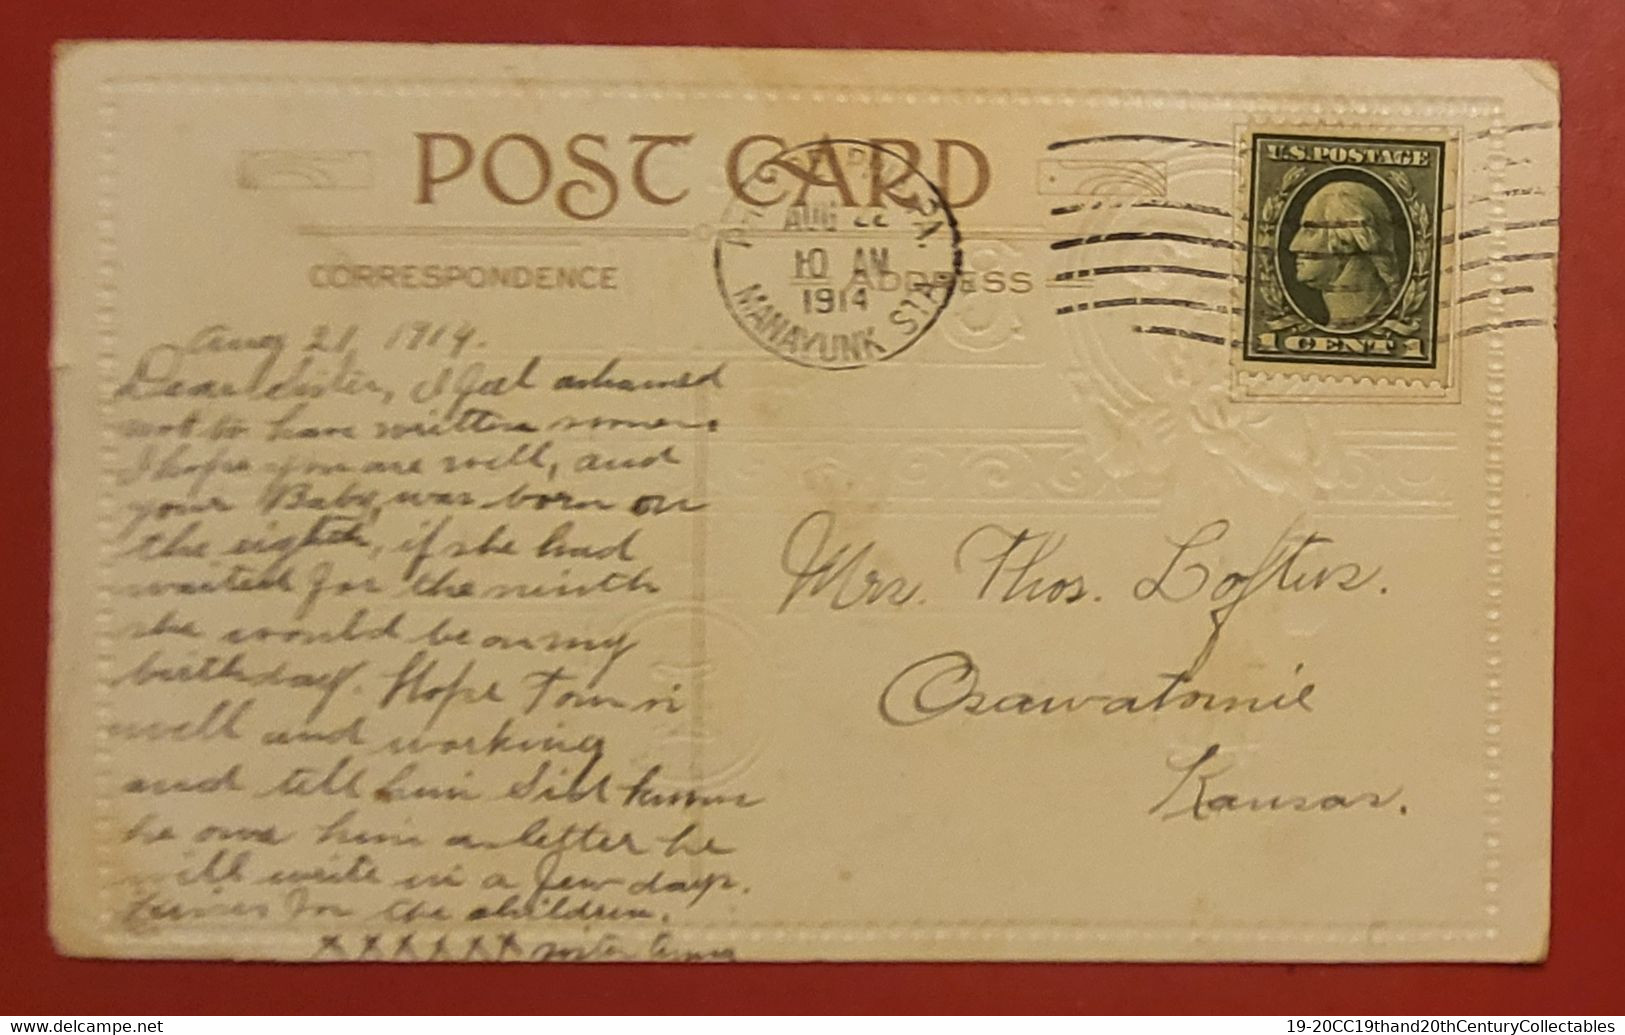 POST CARD
CORRESPONDENCE
ADDRESS
PA.
AUG 22
10 AM
1914
MANAYUNK STA.
U.S. POSTAGE
1 CENT 1
Aug 21, 1914.
Dear Sister, I feel ashamed
not to have written sooner.
I hope you are well, and
your Baby, was born on
the eighth, if she had
waited for the ninth
she would be on my
birthday. Hope Tom is
well and working
and tell him Sid knows
he owe him a letter he
will write in a few days.
Kisses for the children.
xxxxxx sister
Mrs. Thos. Loftus.
Osawatomie
Kansas.
delcampe.net
19-20CC19thand20thCenturyCollectables